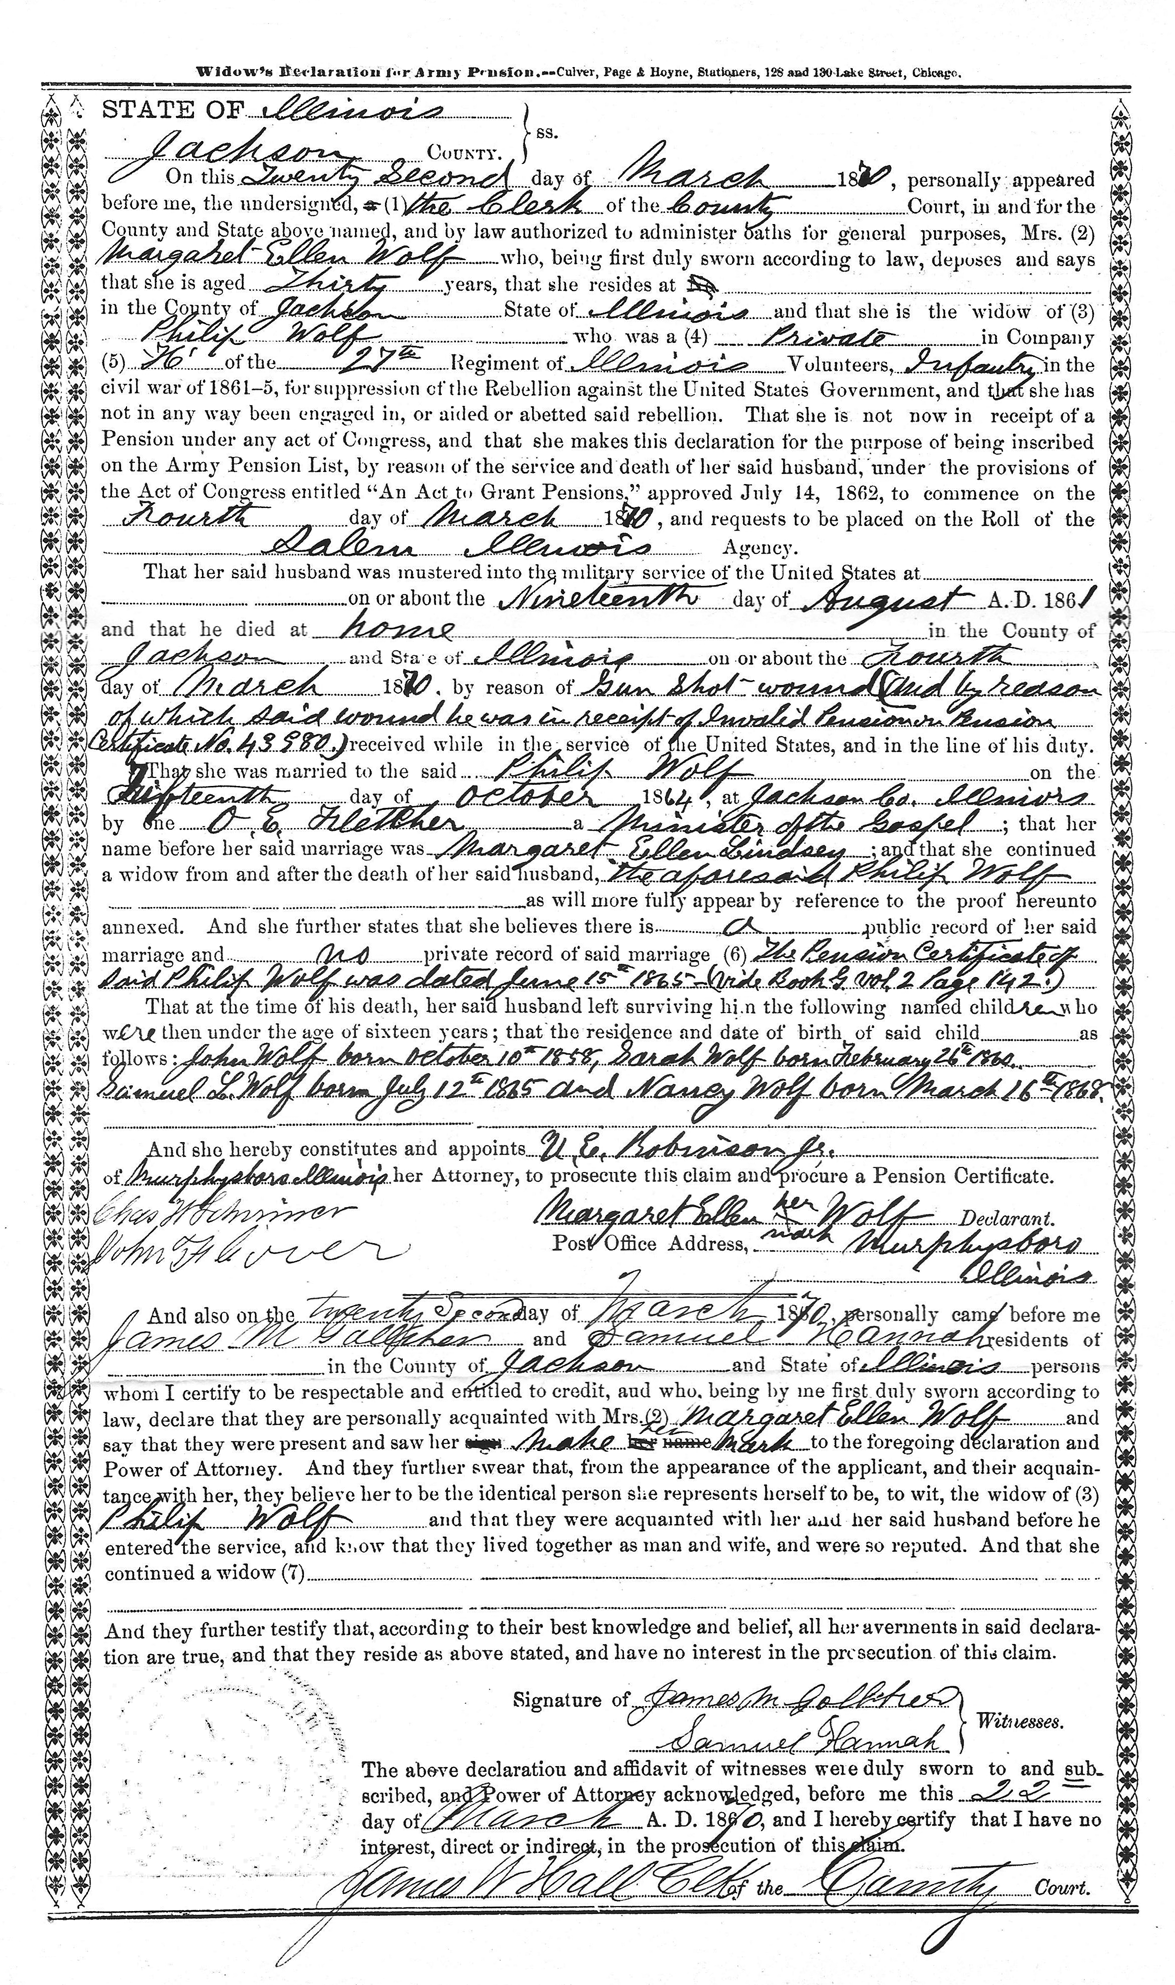 Widow's Declaration for Army Pension.--Culver, Page & Hoyne, Stationers, 128 and 130 Lake Street, Chicago.
STATE OF Illinois
ss.
Jackson COUNTY.
On this Twenty Second day of March 1870, personally appeared
before me, the undersigned, a (1) the Clerk of the County Court, in and for the
County and State above named, and by law authorized to administer oaths for general purposes, Mrs. (2)
Margaret Ellen Wolf who, being first duly sworn according to law, deposes and says
that she is aged Thirty years, that she resides at
in the County of Jackson State of Illinois and that she is the widow of (3)
Philip Wolf who was a (4) Private in Company
(5) of the 27th Regiment of Illinois Volunteers, Infantry in the
civil war of 1861-5, for suppression of the Rebellion against the United States Government, and that she has
not in any way been engaged in, or aided or abetted said rebellion. That she is not now in receipt of a
Pension under any act of Congress, and that she makes this declaration for the purpose of being inscribed
on the Army Pension List, by reason of the service and death of her said husband, under the provisions of
the Act of Congress entitled "An Act to Grant Pensions," approved July 14, 1862, to commence on the
Fourth day of March 1870, and requests to be placed on the Roll of the
Salem Illinois Agency.
That her said husband was mustered into the military service of the United States at
on or about the Nineteenth day of August A.D. 1861
and that he died at home in the County of
Jackson and State of Illinois on or about the Fourth
day of March 1870. by reason of Gun Shot wound (And by reason
of which said wound he was in receipt of Invalid Pension on Pension
Certificate No. 43980.) received while in the service of the United States, and in the line of his duty.
That she was married to the said Philip Wolf on the
Fifteenth day of October 1864, at Jackson Co. Illinois
by one O. E. Fletcher a Minister of the Gospel; that her
name before her said marriage was Margaret Ellen Lindsey; and that she continued
a widow from and after the death of her said husband, the aforesaid Philip Wolf
as will more fully appear by reference to the proof hereunto
annexed. And she further states that she believes there is a public record of her said
marriage and no private record of said marriage (6) The Pension Certificate of
said Philip Wolf was dated June 15th 1865 - (Vide Book G Vol. 2 Page 142.)
That at the time of his death, her said husband left surviving him the following named children who
were then under the age of sixteen years; that the residence and date of birth of said child as
follows: John Wolf born October 10th 1858, Sarah Wolf born February 26th 1860
Samuel L. Wolf born July 12th 1865 and Nancy Wolf born March 16th 1868.
And she hereby constitutes and appoints U. E. Robinson Jr.
of Murphysboro Illinois her Attorney, to prosecute this claim and procure a Pension Certificate.
Chas W Schriner
Margaret Ellen her mark Wolf Declarant.
John F Glover
Post Office Address, Murphysboro
Illinois
And also on the twenty Second day of March 1870, personally came before me
James M and Samuel Hannah residents of
in the County of Jackson and State of Illinois persons
whom I certify to be respectable and entitled to credit, and who, being by me first duly sworn according to
law, declare that they are personally acquainted with Mrs. (2) Margaret Ellen Wolf and
say that they were present and saw her sign Make her her name Mark to the foregoing declaration and
Power of Attorney. And they further swear that, from the appearance of the applicant, and their acquain-
tance with her, they believe her to be the identical person she represents herself to be, to wit, the widow of (3)
Philip Wolf and that they were acquainted with her and her said husband before he
entered the service, and know that they lived together as man and wife, and were so reputed. And that she
continued a widow (7)
And they further testify that, according to their best knowledge and belief, all her averments in said declara-
tion are true, and that they reside as above stated, and have no interest in the prosecution of this claim.
Signature of James M
Witnesses.
Samuel Hannah
The above declaration and affidavit of witnesses were duly sworn to and sub-
scribed, and Power of Attorney acknowledged, before me this 22
day of March A. D. 1870, and I hereby certify that I have no
interest, direct or indirect, in the prosecution of this claim.
James W Hall Clk of the County Court.